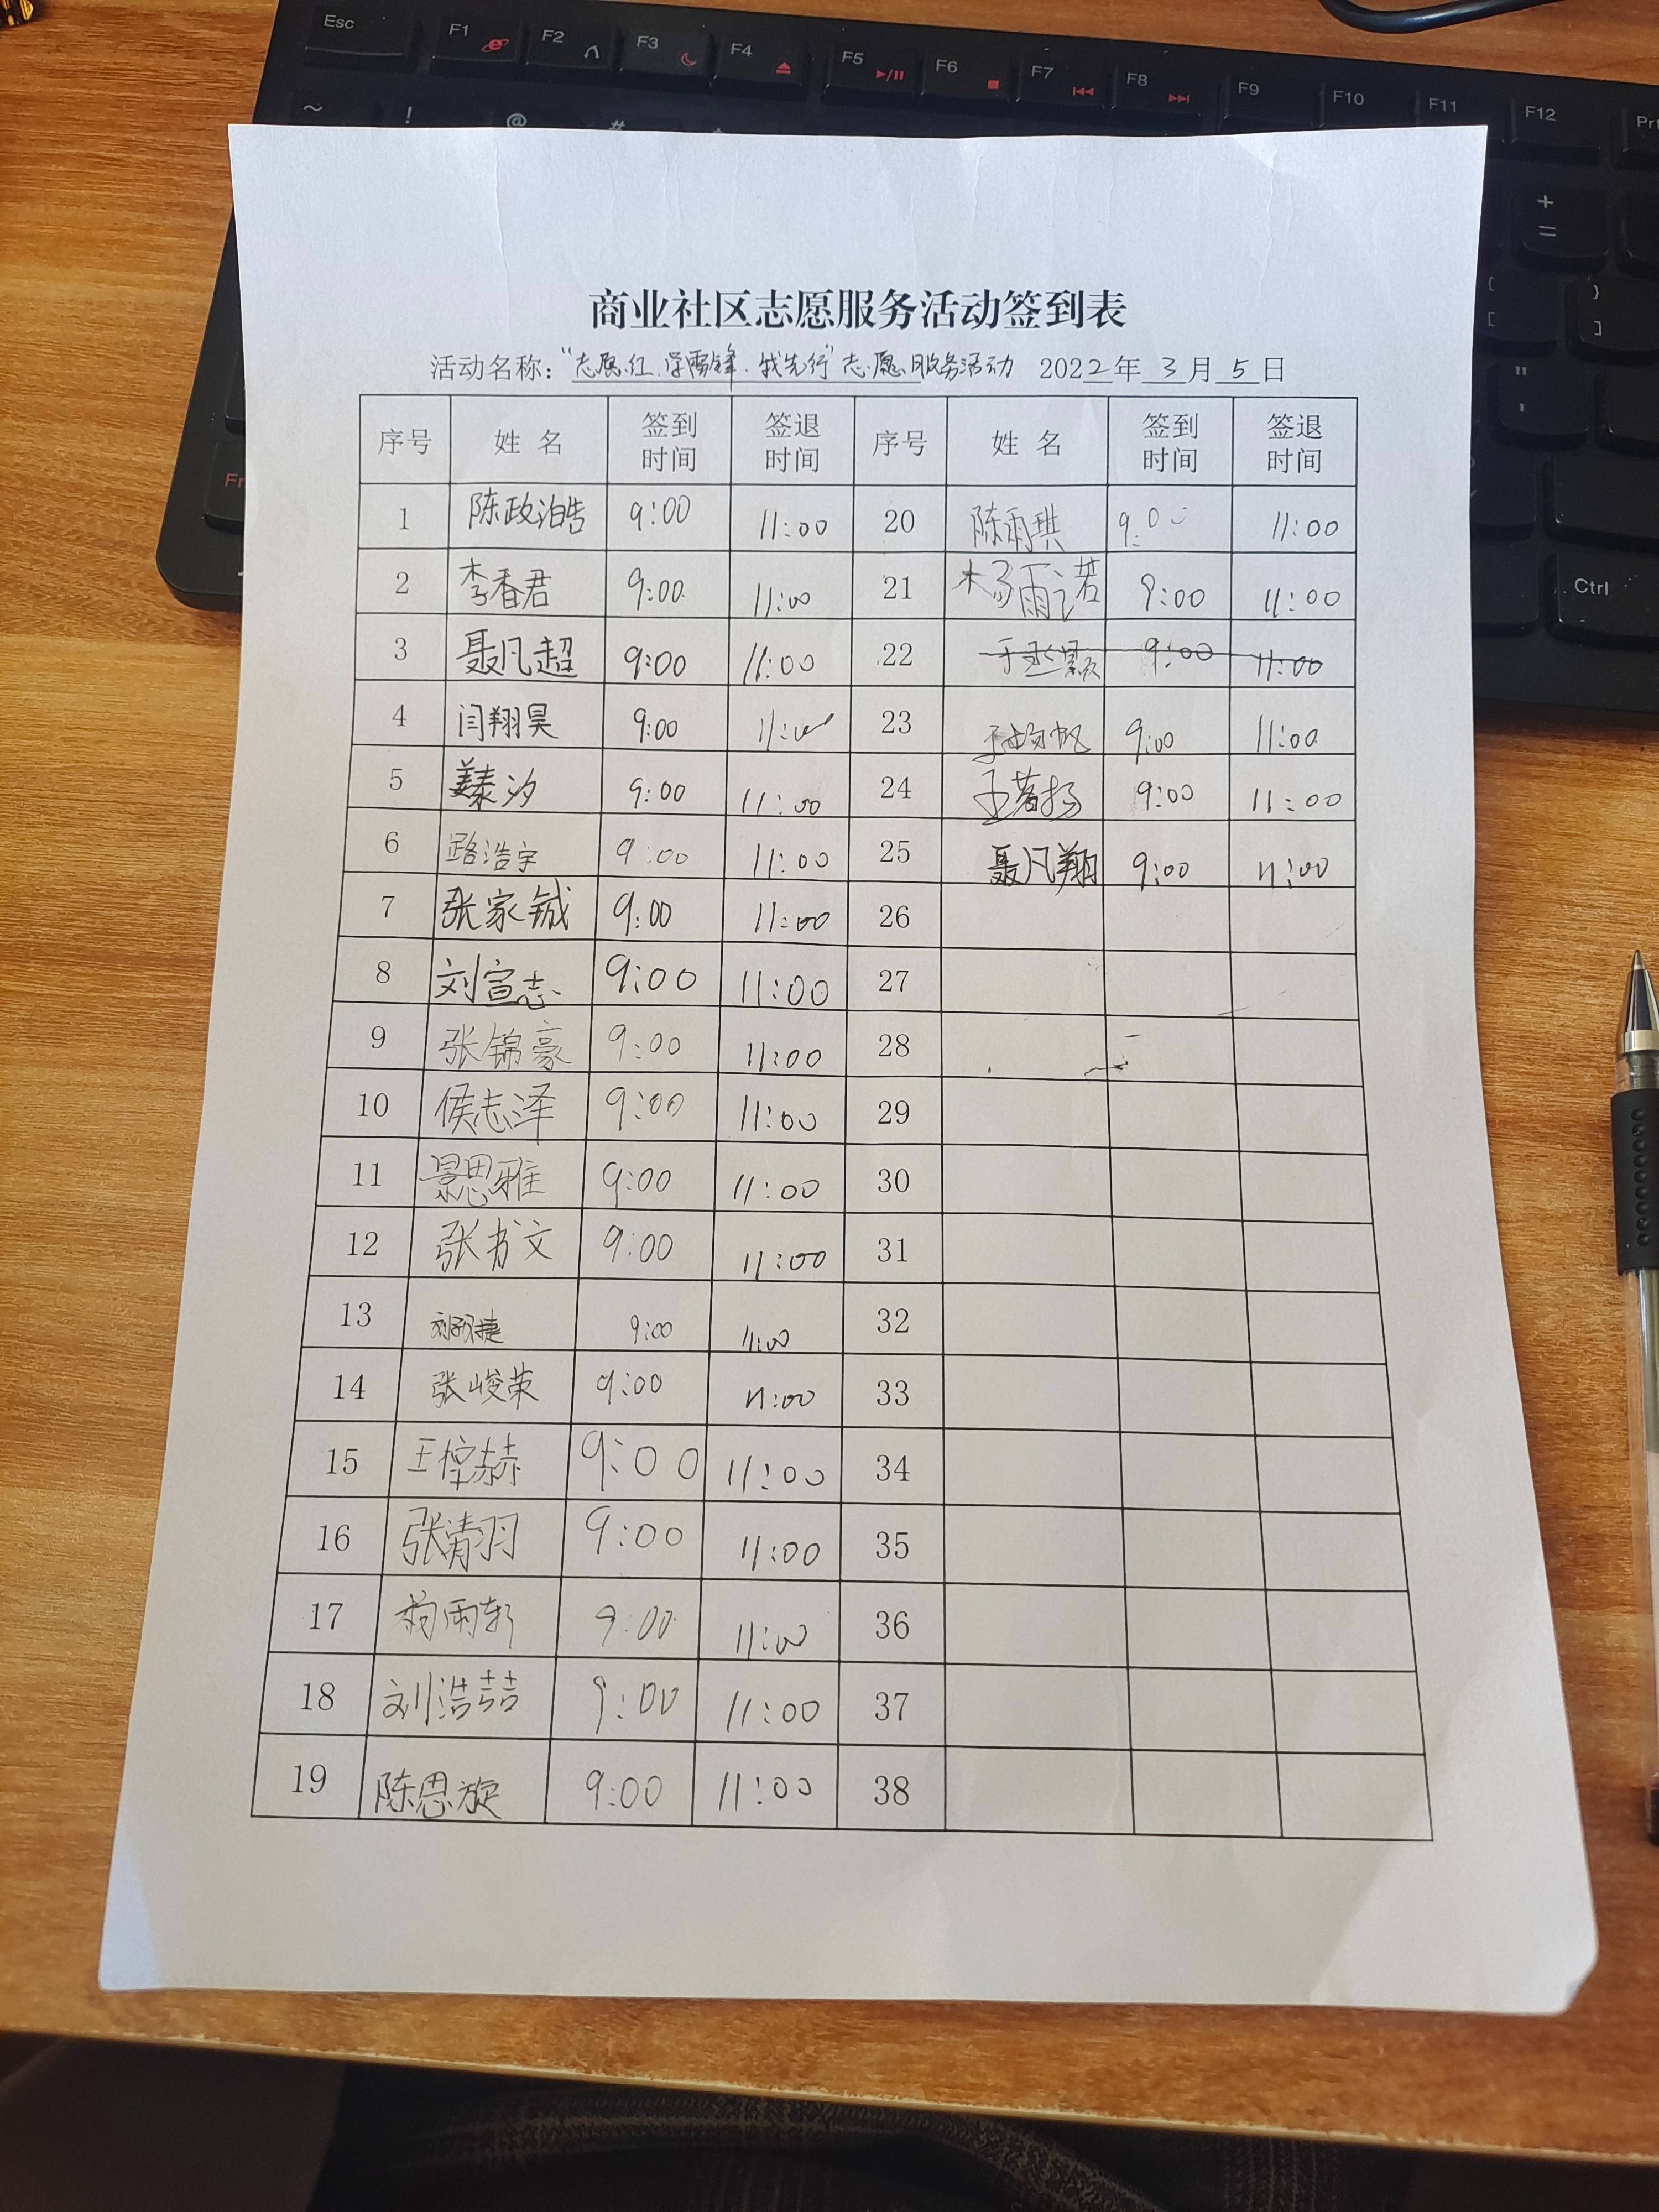 Esc F1 F2 F3 F4 F5 F6 F7 F8 F9 F10 F11 F12
~ ! @ #
+
=
Ctrl
商业社区志愿服务活动签到表
活动名称：“志愿红、学雷锋、我先行”志愿服务活动 2022年3月5日
序号 姓名 签到时间 签退时间 序号 姓名 签到时间 签退时间
1 陈政泊皓 9:00 11:00 20 陈雨琪 9:00 11:00
2 李香君 9:00 11:00 21 杨雨诺 9:00 11:00
3 聂凡超 9:00 11:00 22 9:00 11:00
4 闫翔昊 9:00 11:00 23 9:00 11:00
5 姜泰汐 9:00 11:00 24 王若扬 9:00 11:00
6 路浩宇 9:00 11:00 25 聂凡翔 9:00 11:00
7 张家铖 9:00 11:00 26
8 刘宣志 9:00 11:00 27
9 张锦豪 9:00 11:00 28
10 侯志泽 9:00 11:00 29
11 景思雅 9:00 11:00 30
12 张书文 9:00 11:00 31
13 9:00 11:00 32
14 张峻荣 9:00 11:00 33
15 9:00 11:00 34
16 张清羽 9:00 11:00 35
17 9:00 11:00 36
18 刘浩喆 9:00 11:00 37
19 陈思旋 9:00 11:00 38